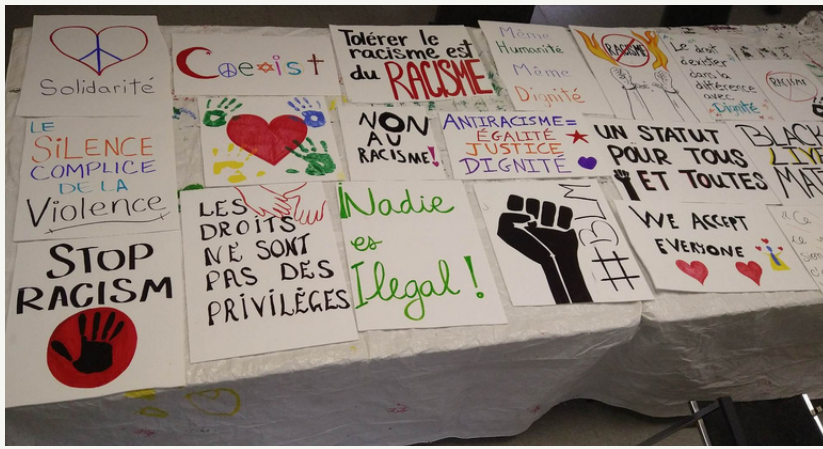 Solidarité
Coexist
Tolérer le
racisme est
du RACISME
Même
Humanité
Même
Dignité
RACISME
Le droit
d'exister
dans la
différence
avec
Dignité
RACISME
LE
SILENCE
COMPLICE
DE LA
Violence
NON
AU
RACISME!
ANTIRACISME=
ÉGALITÉ
JUSTICE
DIGNITÉ
UN STATUT
POUR TOUS
ET TOUTES
BLACK
STOP
RACISM
LES
DROITS
NE SONT
PAS DES
PRIVILÈGES
Nadie
es
Ilegal!
#BLM
WE ACCEPT
EVERYONE